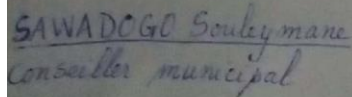 SAWADOGO Souleymane
Conseiller municipal